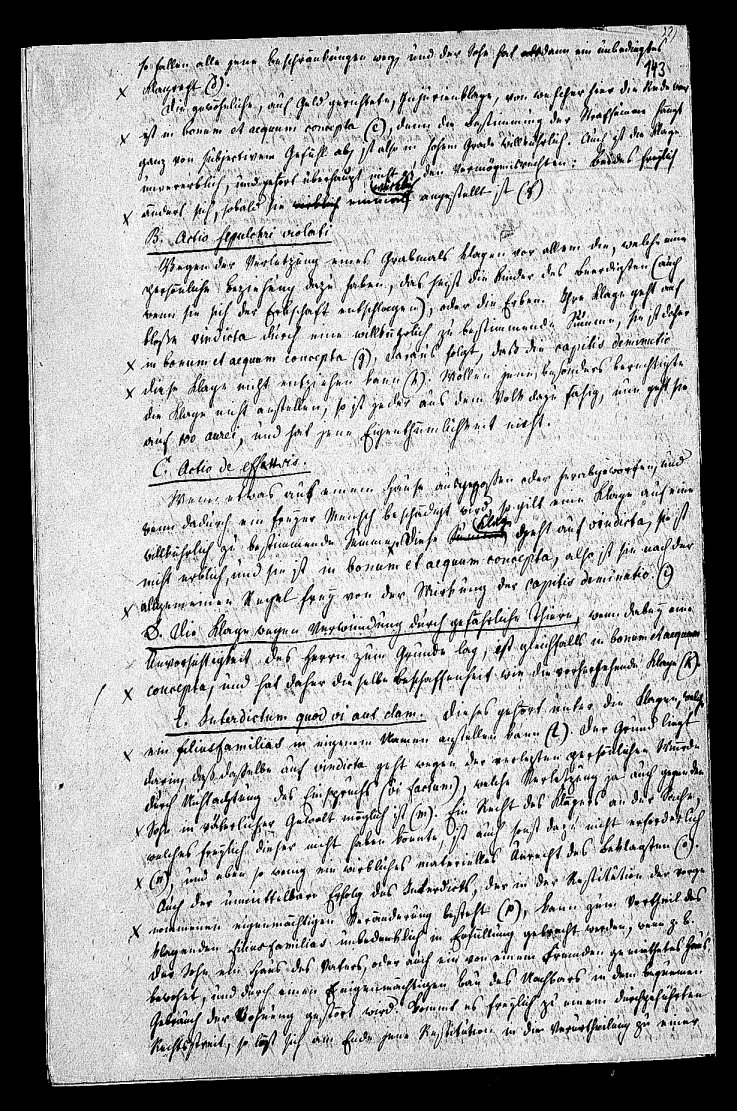 143
so fallen alle jene Beschränkungen weg, und der Sohn hat alsdann ein unbedingtes
Klagrecht (d).
Die gewöhnliche, auf Geld gerichtete, Injurienklage, von welcher hier die Rede war
ist in bonum et aequum concepta (e), denn die Bestimmung der Strafsumme hängt
ganz von subjectivem Gefühl ab, ist also in hohem Grad willkührlich. Auch ist die Klage
unvererblich, und gehört überhaupt nicht zu den Vermögensrechten: beides freylich
ändert sich, sobald sie wirklich einmal angestellt ist (f)
B. Actio sepulchri violati
Wegen der Verletzung eines Grabmals klagen vor allem die, welche eine
persönliche Beziehung dazu haben, das heißt die Kinder des Beerdigten (auch
wenn sie sich der Erbschaft entschlagen), oder die Erben. Ihre Klage geht auf
bloße vindicta durch eine willkührlich zu bestimmende Summe, sie ist daher
in bonum et aequum concepta (g), daraus folgt, daß die capitis deminutio
diese Klage nicht entziehen kann (h). Wollen jene besonders berechtigte
die Klage nicht anstellen, so ist jeder aus dem Volk dazu fähig, nun geht sie
auf 100 aurei, und hat jene Eigenthümlichkeit nicht.
C. Actio de effusis.
Wenn etwas aus einem Hause ausgegossen oder herabgeworfen, und
wenn dadurch ein freyer Mensch beschädigt wird, so gilt eine Klage auf eine
willkührlich zu bestimmende Summe. Diese Klage geht auf vindicta, sie ist
nicht erblich, und sie ist in bonum et aequum concepta, also ist sie nach der
allgemeinen Regel frey von der Wirkung der capitis deminutio. (i)
D. Die Klage wegen Verwundung durch gefährliche Thiere, wenn dabey eine
Unvorsichtigkeit des Herrn zum Grunde lag, ist gleichfalls in bonum et aequum
concepta, und hat daher dieselbe Beschaffenheit wie die vorhergehende Klage (k).
E. Interdictum quod vi aut clam. Dieses gehört unter die Klagen, welche
ein filiusfamilias in eigenem Namen anstellen kann (l). Der Grund liegt
darin, daß dasselbe auf vindicta geht wegen der verletzten persönlichen Würde
durch Nichtachtung des Einspruchs (vi factum), welche Verletzung ja auch gegen den
Sohn in väterlicher Gewalt möglich ist (m). Ein Recht des Klägers an der Sache,
welches freylich dieser nicht haben könnte, ist auch sonst dazu nicht erforderlich
(n), und eben so wenig ein wirkliches materielles Unrecht des Beklagten (o).
Auch der unmittelbare Erfolg des Interdicts, der in der Restitution der vorge
nommenen eigenmächtigen Veränderung besteht (p), kann zum Vortheil des
klagenden filiusfamilias unbedenklich in Erfüllung gebracht werden, wenn z. B.
der Sohn ein Haus des Vaters, oder auch ein von einem Fremden gemiethetes Haus
bewohnt, und durch einen eigenmächtigen Bau des Nachbars in dem bequemen
Gebrauch der Wohnung gestört wird. Kommt es freylich zu einem durchgeführten
Rechtsstreit, so löst sich am Ende jene Restitution in die Verurtheilung zu einer